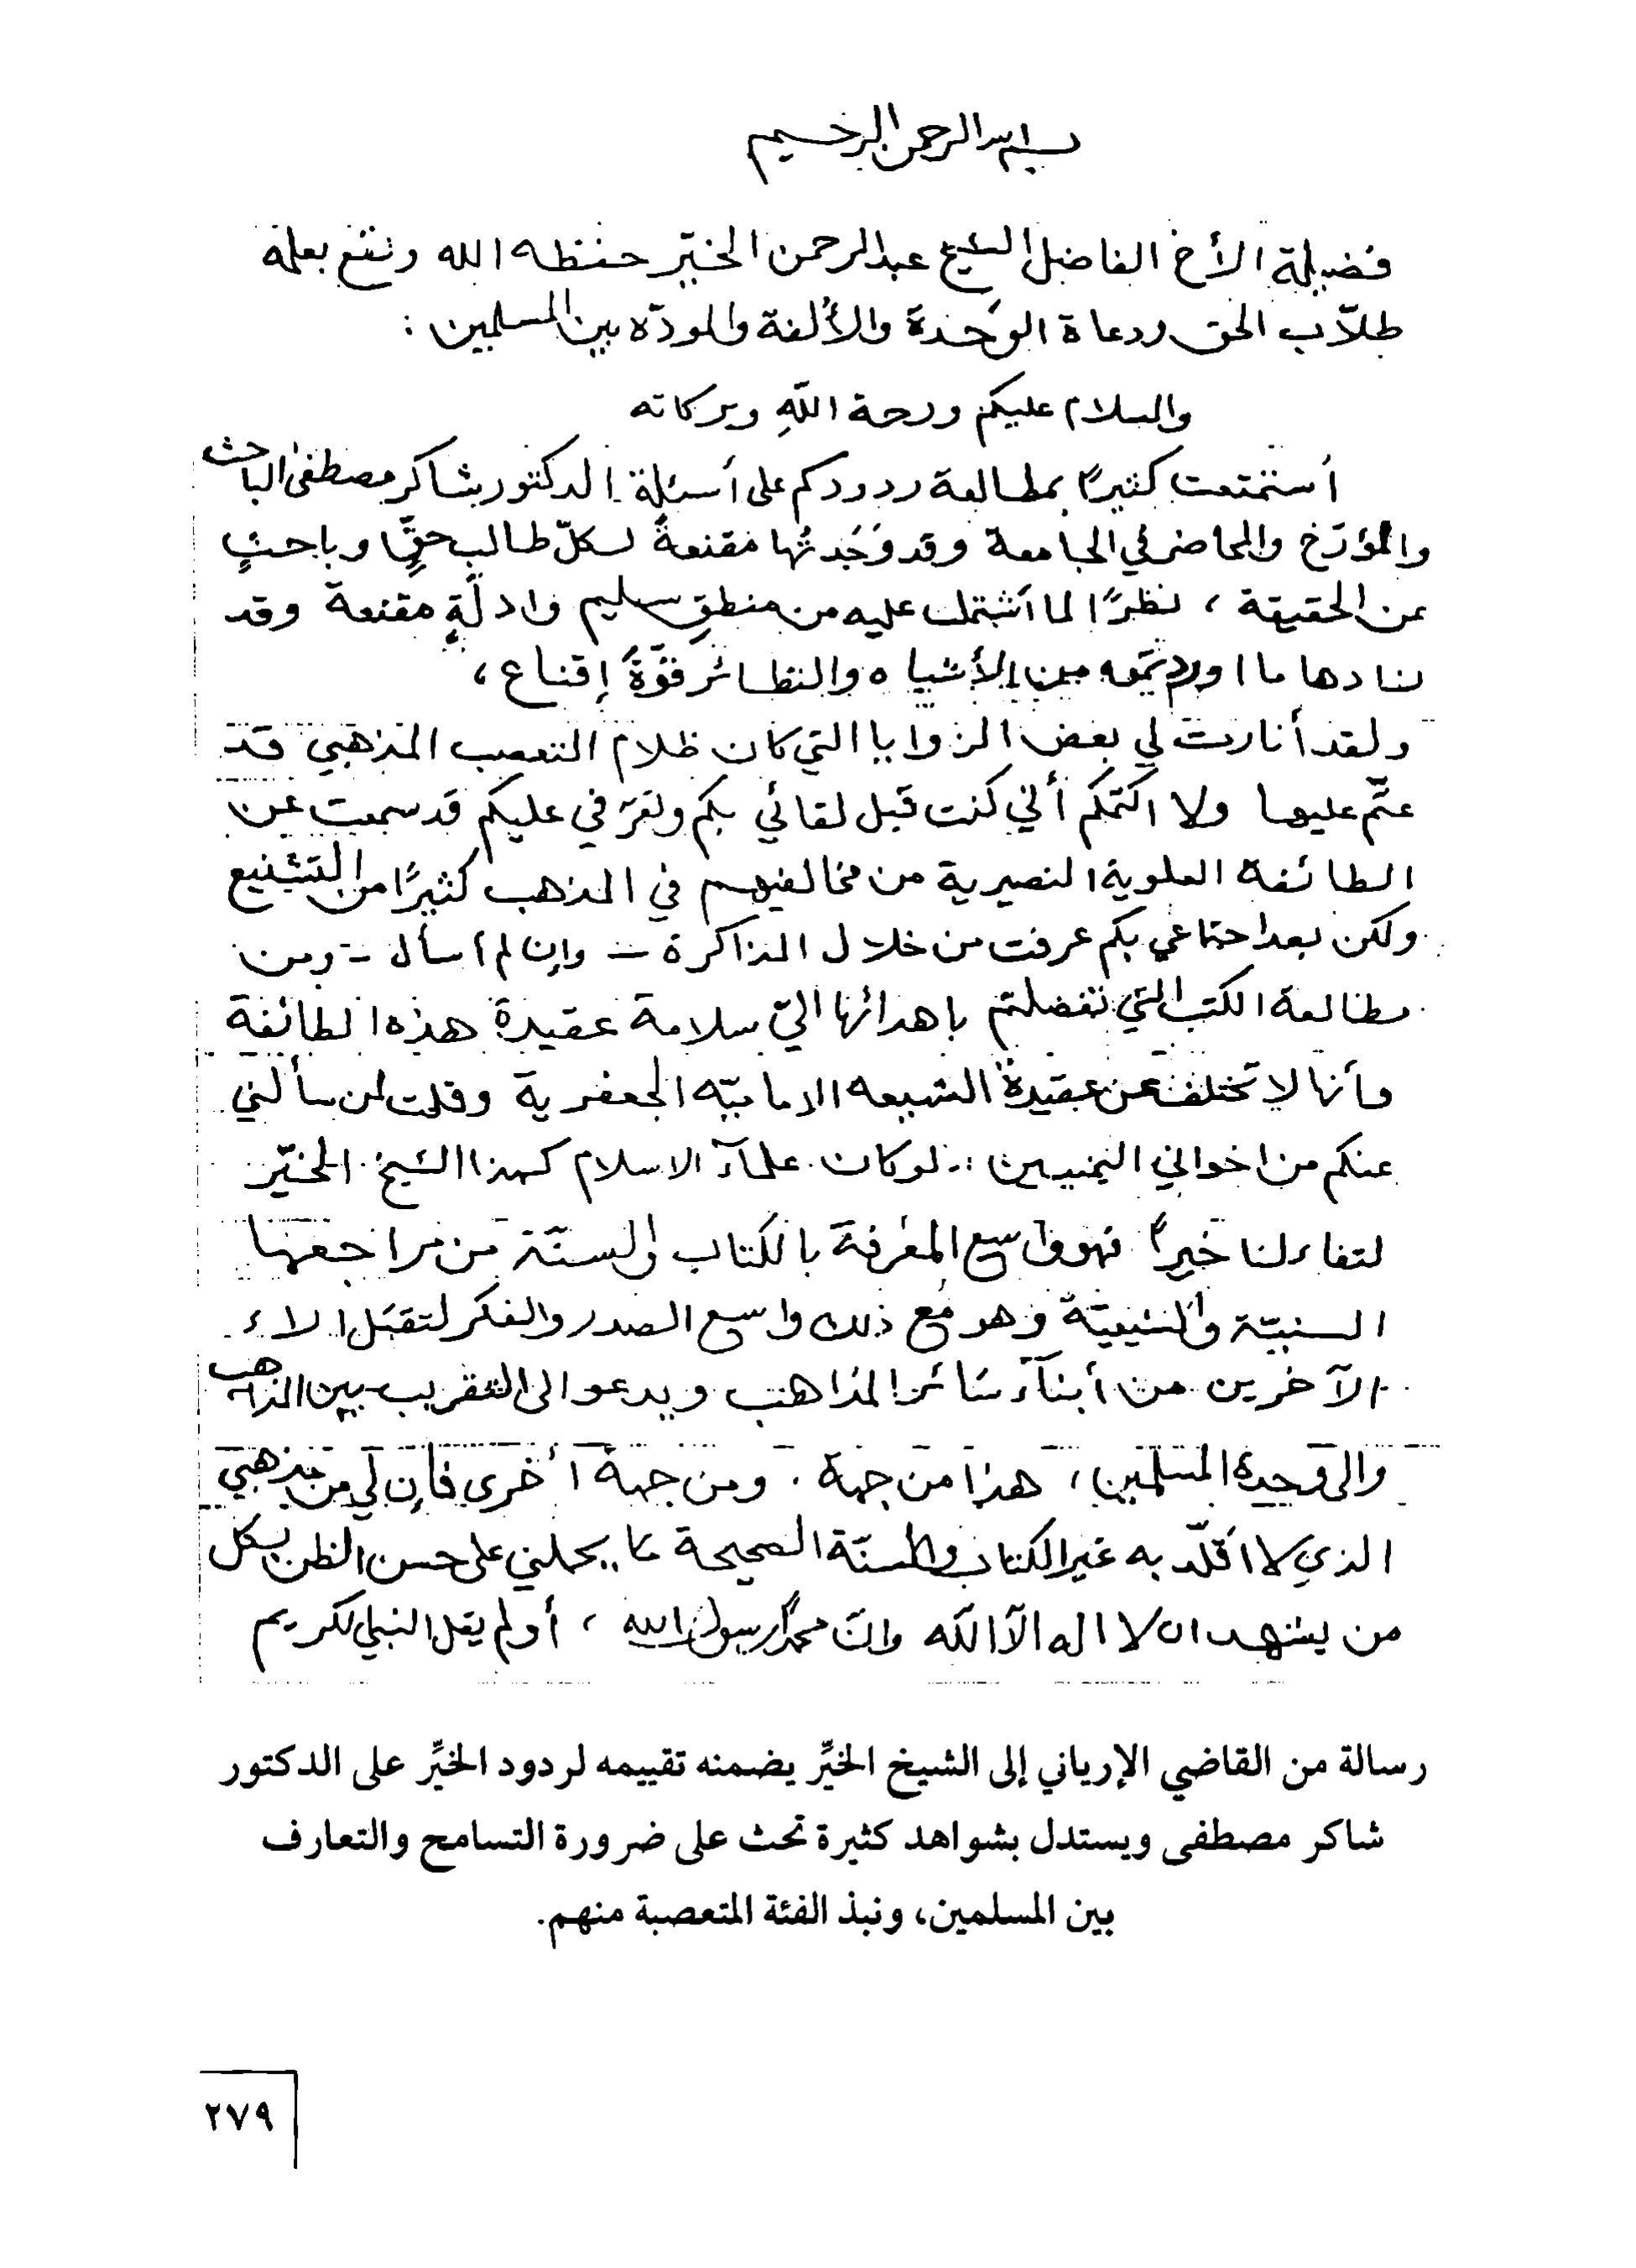 بسم الله الرحمن الرحيم
فضيلة الأخ الفاضل الشيخ عبدالرحمن الخيّر حفظه الله ونفع بعلمه
طلّاب الحق ودعاة الوَحدة والأُلفة والمودّة بين المسلمين :
والسلام عليكم ورحمة اللهِ وبركاته
أستمتعت كثيرًا بمطالعة ردودكم على أسئلة الدكتور شاكر مصطفى الباحث
والمؤرّخ والمحاضر في الجامعة وقد وَجَدتُها مقنعةً لكلّ طالبِ حقٍّ وباحثٍ
عن الحقيقة ، نظرًا لما أشتملت عليه من منطقٍ سليم وادلّةٍ مقنعة وقد
زادها ما اوردتموه من الأشباه والنظائر قوّةَ إقناع ،
ولقد أنارت لي بعض الزوايا التي كان ظلام التعصب المذهبي قد
عتّم عليها ولا اكتمكم أني كنت قبل لقائي بكم وتعرّفي عليكم قد سمعت عن
الطائفة العلوية النصيرية من مخالفيهم في المذهب كثيرًا من التشنيع
ولكن بعد اجتماعي بكم عرفت من خلال المذاكرة - وإن لم أسأل - ومن
مطالعة الكتب التي تفضلتم باهدائها اليّ سلامة عقيدة هذه الطائفة
وأنها لا تختلف عن عقيدة الشيعه الاماميّه الجعفرية وقلت لمن سألني
عنكم من اخواني اليمنيين :. لو كان علمآء الاسلام كهذا الشيخ الخيّر
لتفاءلنا خيرًا فهو واسع المعرفة بالكتاب والسنّة من مراجعها
السنيّة والشيعيّة وهو مع ذلك واسع الصدر والفكر لتقبّل الاء
الآخرين من أبنآء سائر المذاهب ويدعو الى التقريب بين المذاهب
والى وحدة المسلمين ، هذا من جهة . ومن جهة أخرى فإن لي من مذهبي
الذي لا اقلّد به غير الكتاب والسنّة الصحيحة ما يحملني على حسن الظن بكل
من يشهد ان لا اله الاّ الله وانّ محمدًا رسول الله ، أولم يقل النبي الكريم
رسالة من القاضي الإرياني إلى الشيخ الخيِّر يضمنه تقييمه لردود الخيِّر على الدكتور
شاكر مصطفى ويستدل بشواهد كثيرة تحث على ضرورة التسامح والتعارف
بين المسلمين، ونبذ الفئة المتعصبة منهم.
٢٧٩